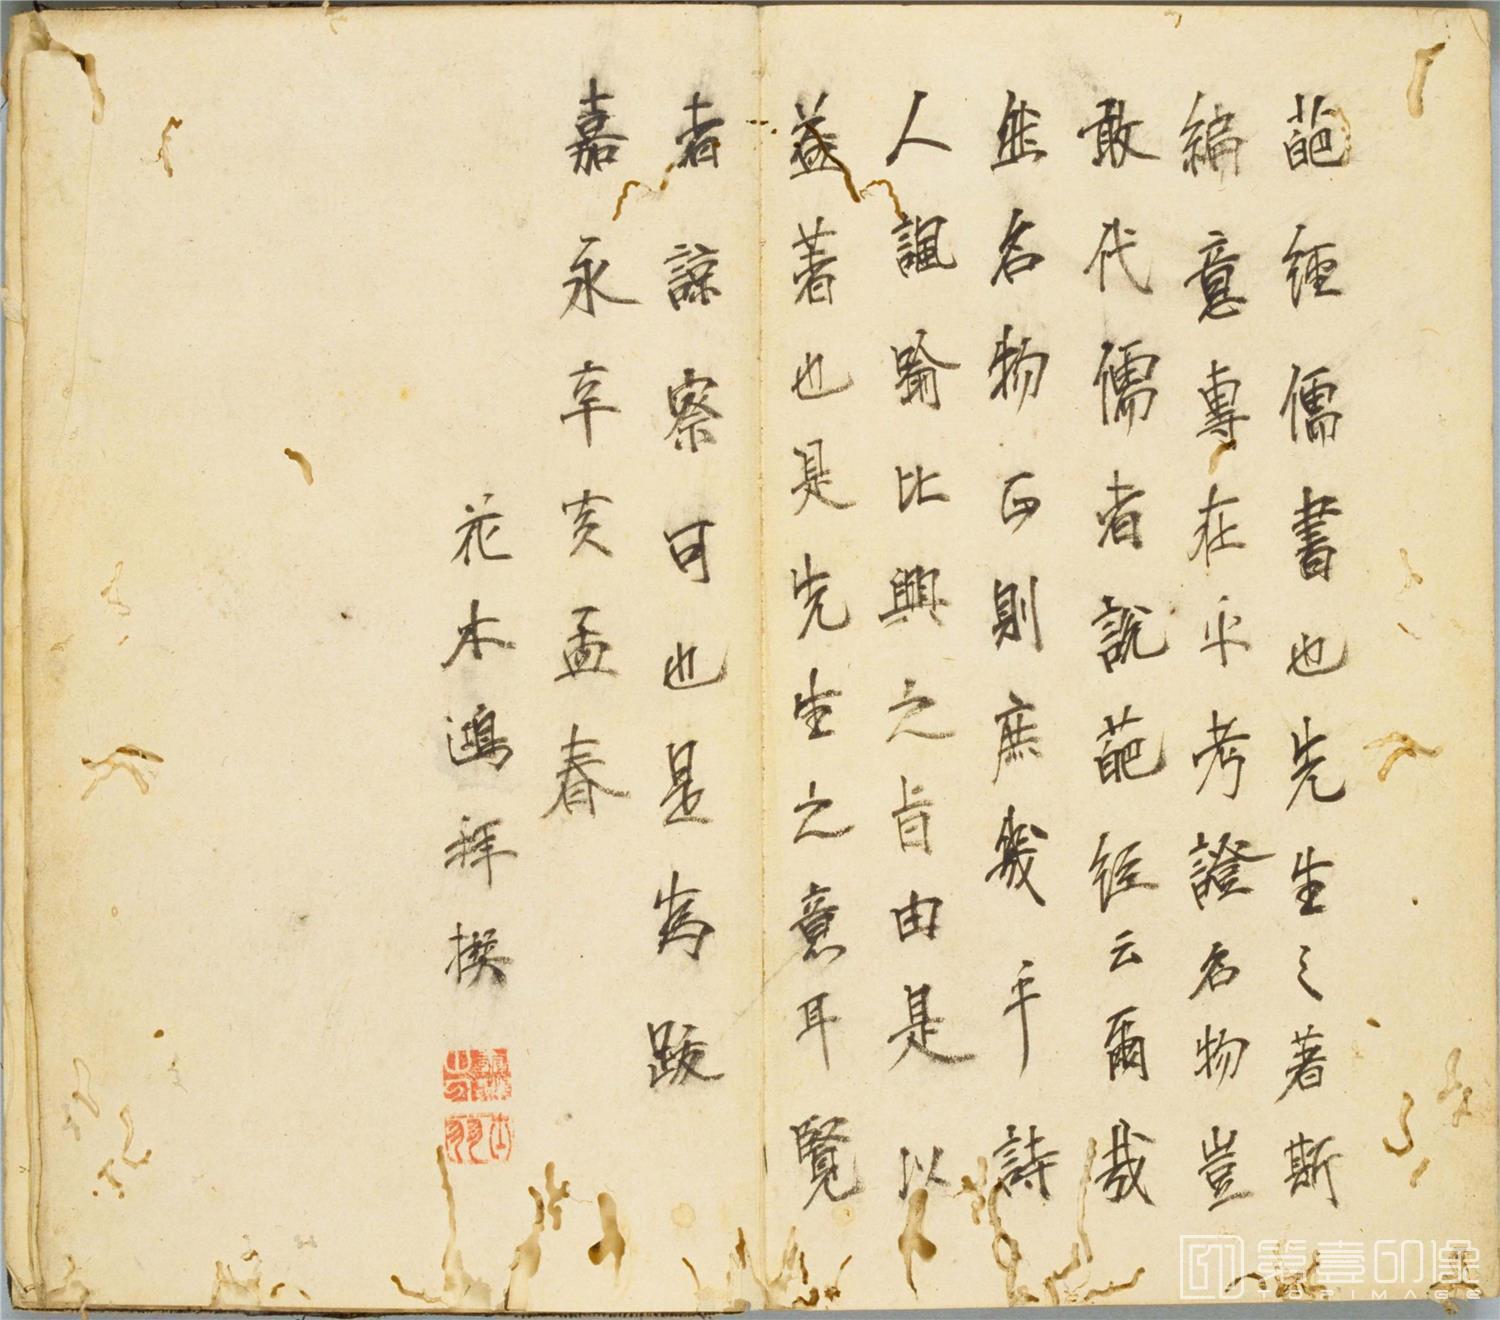 葩経儒書也先生之著斯
編意專在乎考證名物豈
敢代儒者說葩経云爾哉
名物正則庶幾乎詩
人諷喻比興之旨由是以
益著也是先生之意耳覽
者諒察可也是為跋
嘉永辛亥孟春
花木鴻拜撰
第壹印像
TOPIMAGE